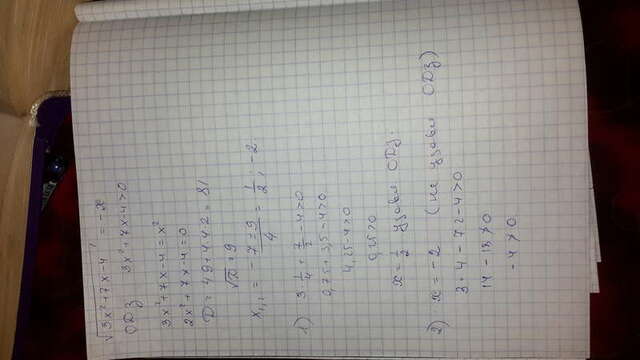 √3x²+7x-4 = -x
ОДЗ 3x²+7x-4>0
3x²+7x-4=x²
2x²+7x-4=0
D=49+4·4·2=81
√D=9
x₁,₂ = -7±9/4 = 1/2, -2.
1) 3·1/4+7/2-4>0
0,75+3,5-4>0
4,25-4>0
0,25>0
x=1/2 удовл ОДЗ.
2) x=-2 (не удовл ОДЗ)
3·4-7·2-4>0
-4>0